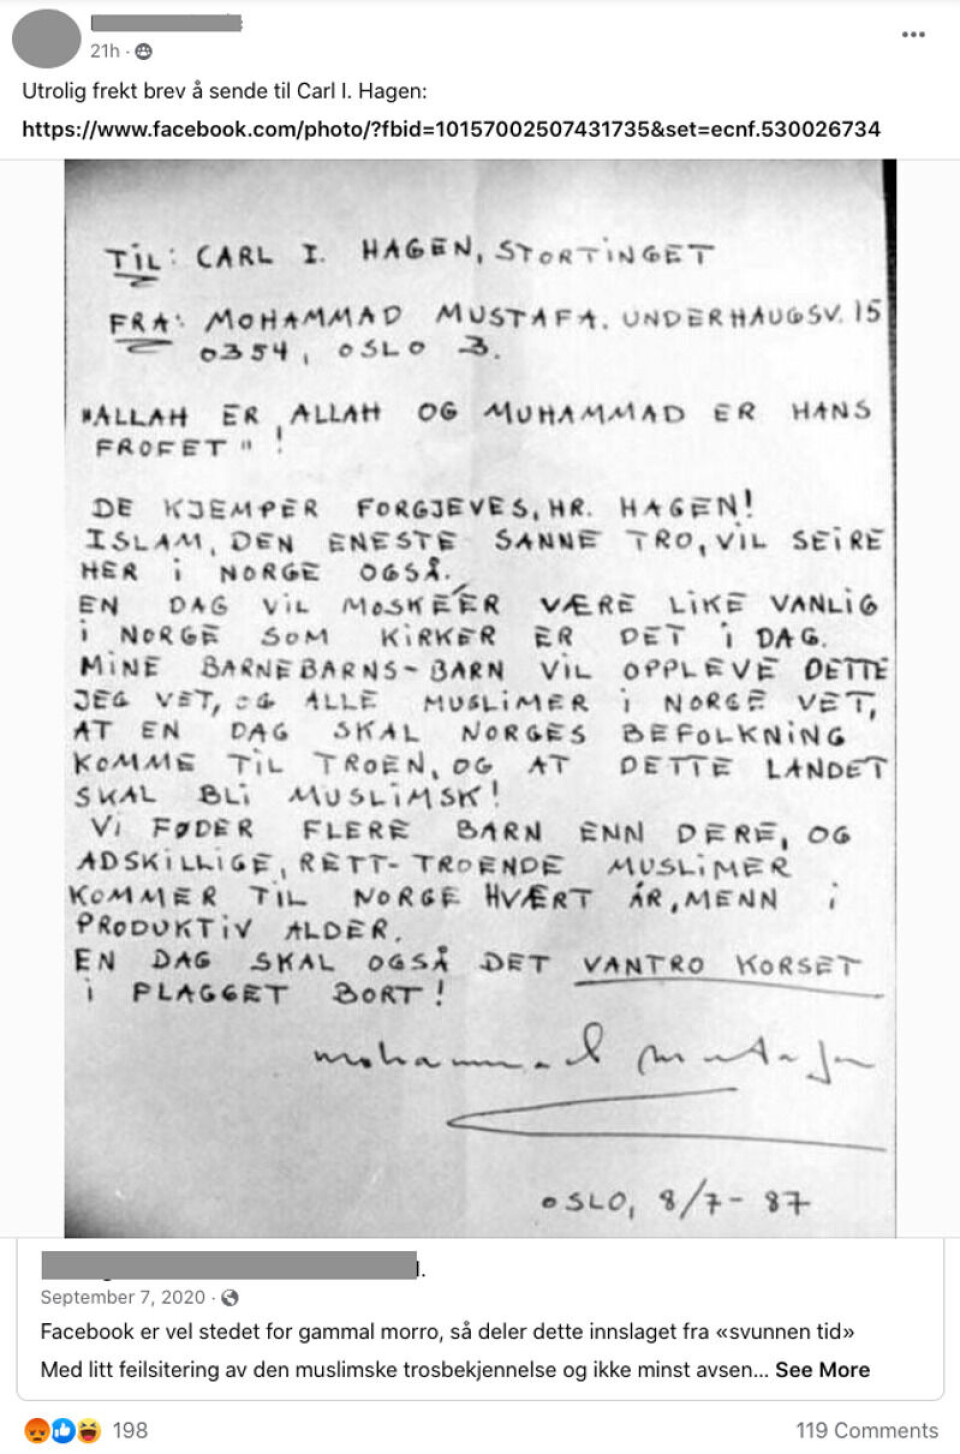 21h ·
Utrolig frekt brev å sende til Carl I. Hagen:
https://www.facebook.com/photo/?fbid=10157002507431735&set=ecnf.530026734
TIL: CARL I. HAGEN, STORTINGET
FRA: MOHAMMAD MUSTAFA. UNDERHAUGSV. 15
0354, OSLO 3.
"ALLAH ER ALLAH OG MUHAMMAD ER HANS
FROFET" !
DE KJEMPER FORGJEVES, HR. HAGEN!
ISLAM, DEN ENESTE SANNE TRO, VIL SEIRE
HER i NORGE OGSÅ.
EN DAG VIL MOSKÉER VÆRE LIKE VANLIG
i NORGE SOM KIRKER ER DET i DAG.
MINE BARNEBARNS-BARN VIL OPPLEVE DETTE
JEG VET, OG ALLE MUSLIMER i NORGE VET,
AT EN DAG SKAL NORGES BEFOLKNING
KOMME TIL TROEN, OG AT DETTE LANDET
SKAL BLI MUSLIMSK!
VI FØDER FLERE BARN ENN DERE, OG
ADSKILLIGE, RETT-TROENDE MUSLIMER
KOMMER TIL NORGE HVÆRT ÅR, MENN i
PRODUKTIV ALDER.
EN DAG SKAL OGSÅ DET VANTRO KORSET
i FLAGGET BORT!
mohammad mustafa
OSLO, 8/7-87
September 7, 2020 ·
Facebook er vel stedet for gammal morro, så deler dette innslaget fra «svunnen tid»
Med litt feilsitering av den muslimske trosbekjennelse og ikke minst avsen... See More
198
119 Comments